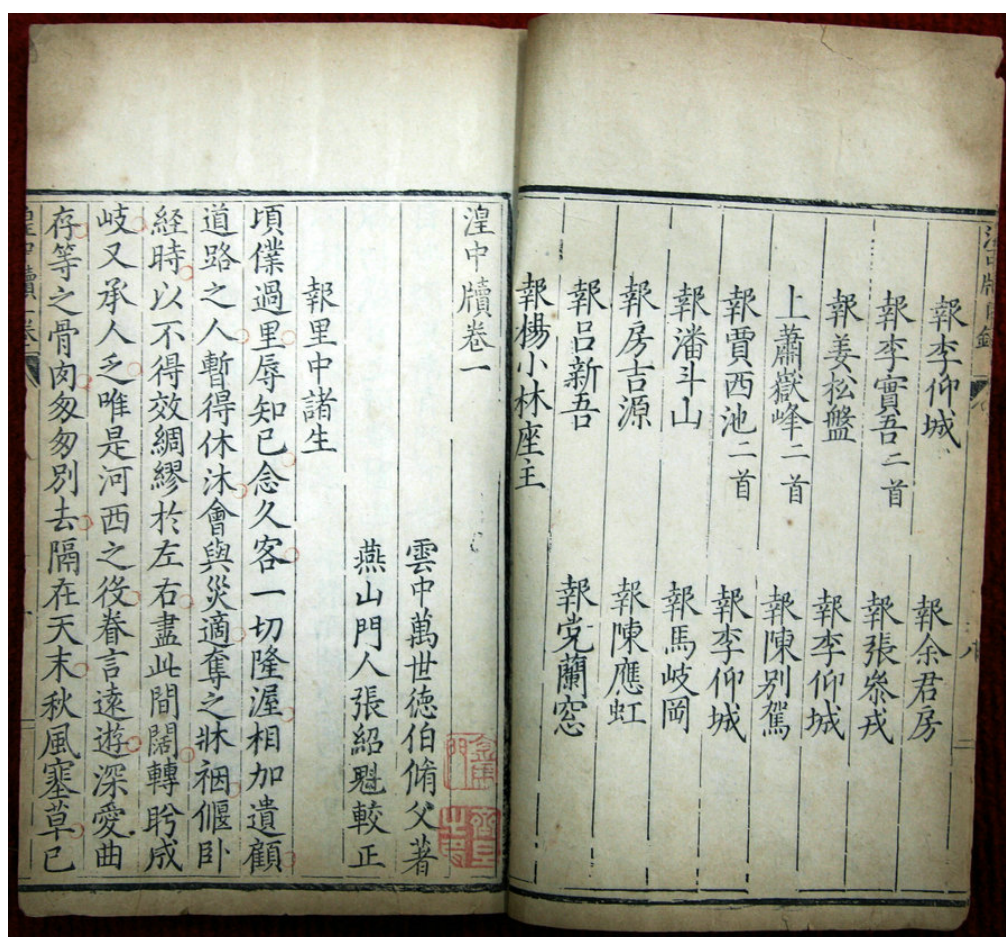 報李仰城
報余君房
報李實吾二首
報張叅戎
報姜松盤
報李仰城
上蕭嶽峰二首
報陳別駕
報賈西池二首
報李仰城
報潘斗山
報馬岐岡
報房吉源
報陳應虹
報呂新吾
報党蘭窓
報楊小林座主
湟中牘卷一
雲中萬世德伯脩父著
燕山門人張紹魁較正
報里中諸生
頃僕過里辱知已念久客一切隆渥相加遺顧
道路之人暫得休沐會與災適奪之牀裀偃卧
経時以不得效綢繆於左右盡此間闊轉盻成
岐又承人乏唯是河西之役眷言遠遊深愛曲
存等之骨肉匆匆別去隔在天末秋風塞草已